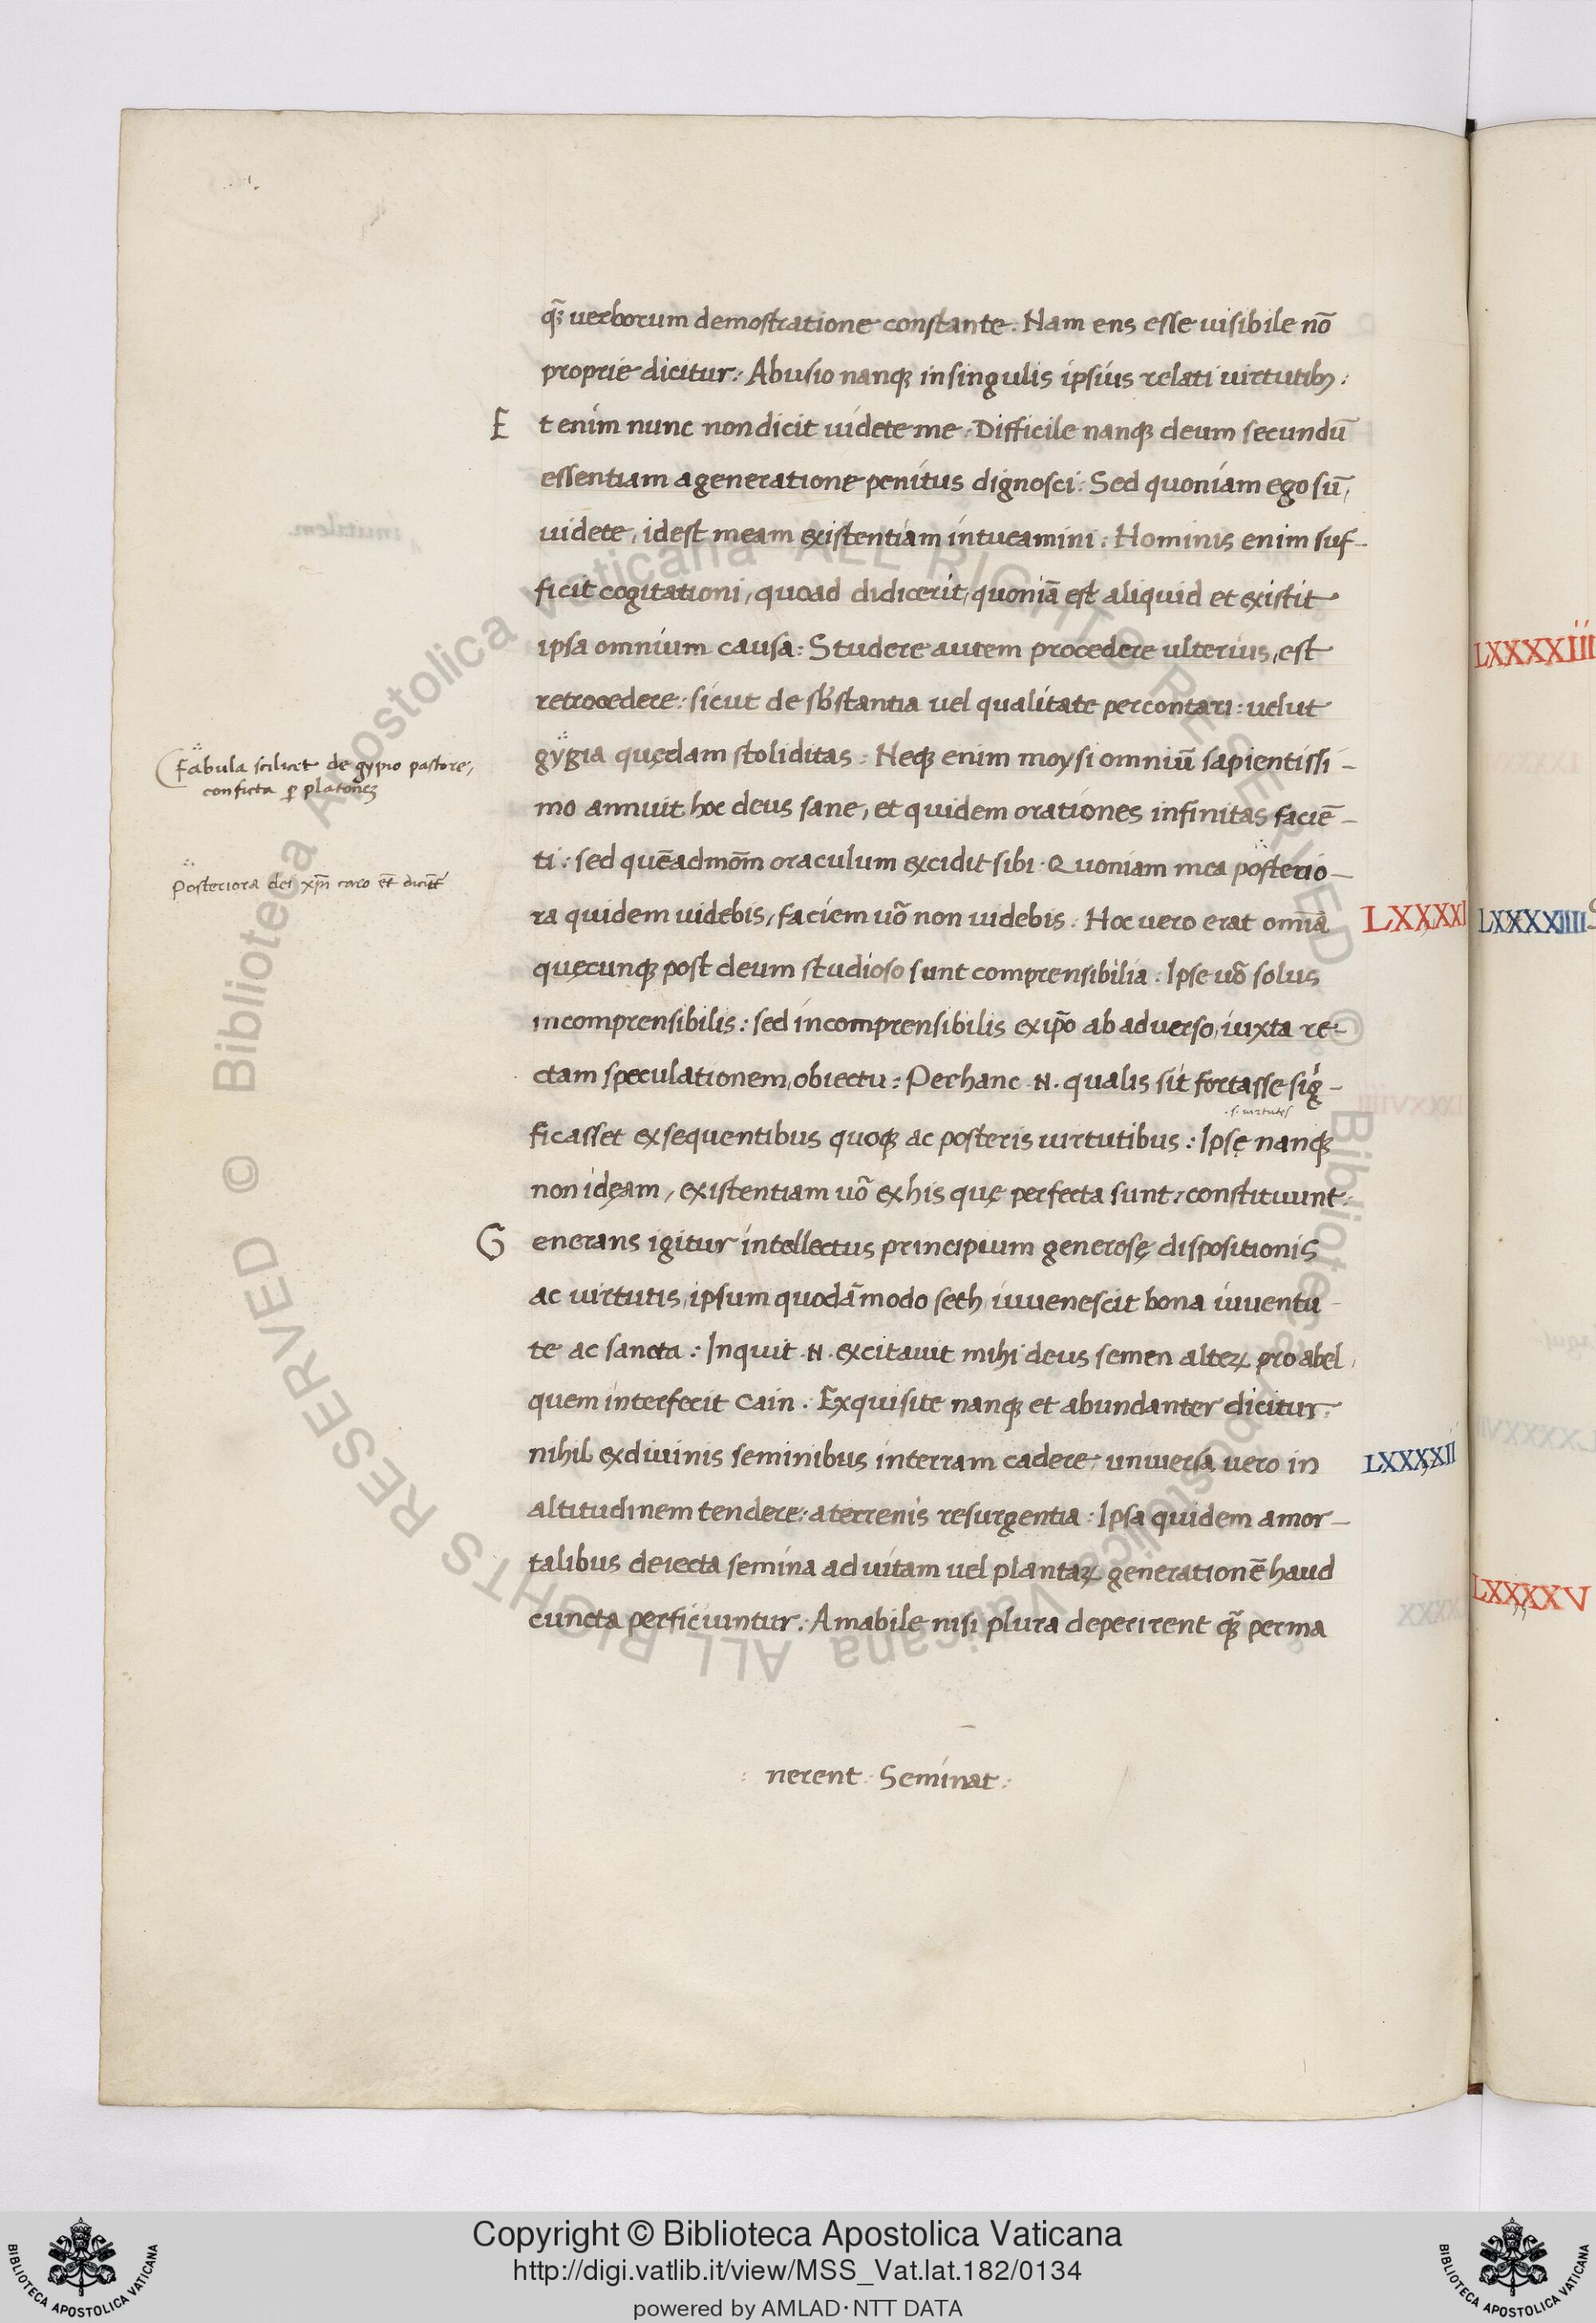 qȝ uerborum demostratione constante. Nam ens esse uisibile nō
proprie dicitur: Abusio nanqȝ in singulis ipsius relati uirtutibȝ:
Et enim nunc non dicit uidete me: Difficile nanqȝ deum secundū
essentiam a generatione penitus dignosci: Sed quoniam ego sū,
uidete, idest meam existentiam intueamini: Hominis enim suf-
ficit cogitationi, quoad didicerit, quoniā est aliquid et existit
ipsa omnium causa: Studere autem procedere ulterius, est
retrocedere: sicut de sb̄stantia uel qualitate percontari: uelut
gygia quędam stoliditas: Neqȝ enim moysi omniū sapientissi-
Fabula scilicet de gygio pastore,
conficta ꝑ platonēȝ
mo annuit hoc deus sane, et quidem orationes infinitas faciē-
ti: sed quēadmōm oraculum excidit sibi. Quoniam mea posterio-
Posteriora dei xp̄i caro
ra quidem uidebis, faciem uō non uidebis: Hoc uero erat omīa LXXXXI
quęcunqȝ post deum studioso sunt comprensibilia: Ipse uō solus
incomprensibilis: sed incomprensibilis ex ip̄o ab aduerso, iuxta re-
ctam speculationem, obiectu: Per hanc .N. qualis sit fortasse sig-
.s. uirtutes
ficasset ex sequentibus quoqȝ ac posteris uirtutibus: Ipsę nanqȝ
non idęam, existentiam uō ex his quę perfecta sunt, constituunt:
Generans igitur intellectus principium generosę dispositionis
ac uirtutis, ipsum quodāmodo seth iuuenescit bona iuuentu-
te ac sancta: Inquit .N. excitauit mihi deus semen alteꝝ pro abel,
quem interfecit Cain: Exquisite nanqȝ et abundanter dicitur:
nihil ex diuinis seminibus in terram cadere: uniuersa uero in LXXXXII
altitudinem tendere: a terrenis resurgentia: Ipsa quidem a mor-
talibus deiecta semina ad uitam uel plantaꝝ generationē haud
cuncta perficiuntur: Amabile nisi plura deperirent qȝ̄ perma
: nerent. Seminat:
LXXXXIII
LXXXXIIII
LXXXXV
© Biblioteca Apostolica Vaticana ALL RIGHTS RESERVED © Biblioteca Apostolica Vaticana ALL RIGHTS RESERVED
Copyright © Biblioteca Apostolica Vaticana
http://digi.vatlib.it/view/MSS_Vat.lat.182/0134
powered by AMLAD·NTT DATA
BIBLIOTECA APOSTOLICA VATICANA
BIBLIOTECA APOSTOLICA VATICANA